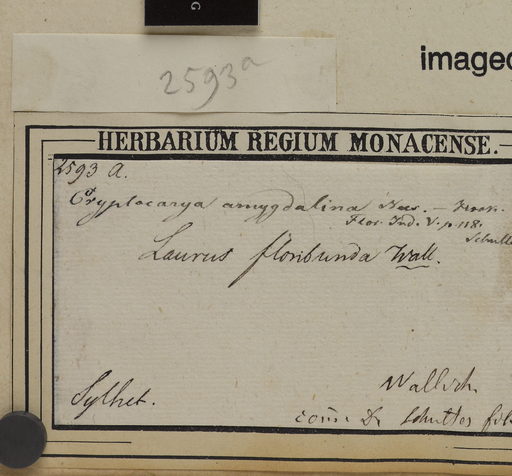 G
imaged
2593a
HERBARIUM REGIUM MONACENSE.
2593 A.
Cryptocarya amygdalina Nees. — Hook.
Flor. Ind. V. p. 118.
Laurus floribunda Wall.
Sylhet.
Wallich.
com. Dr